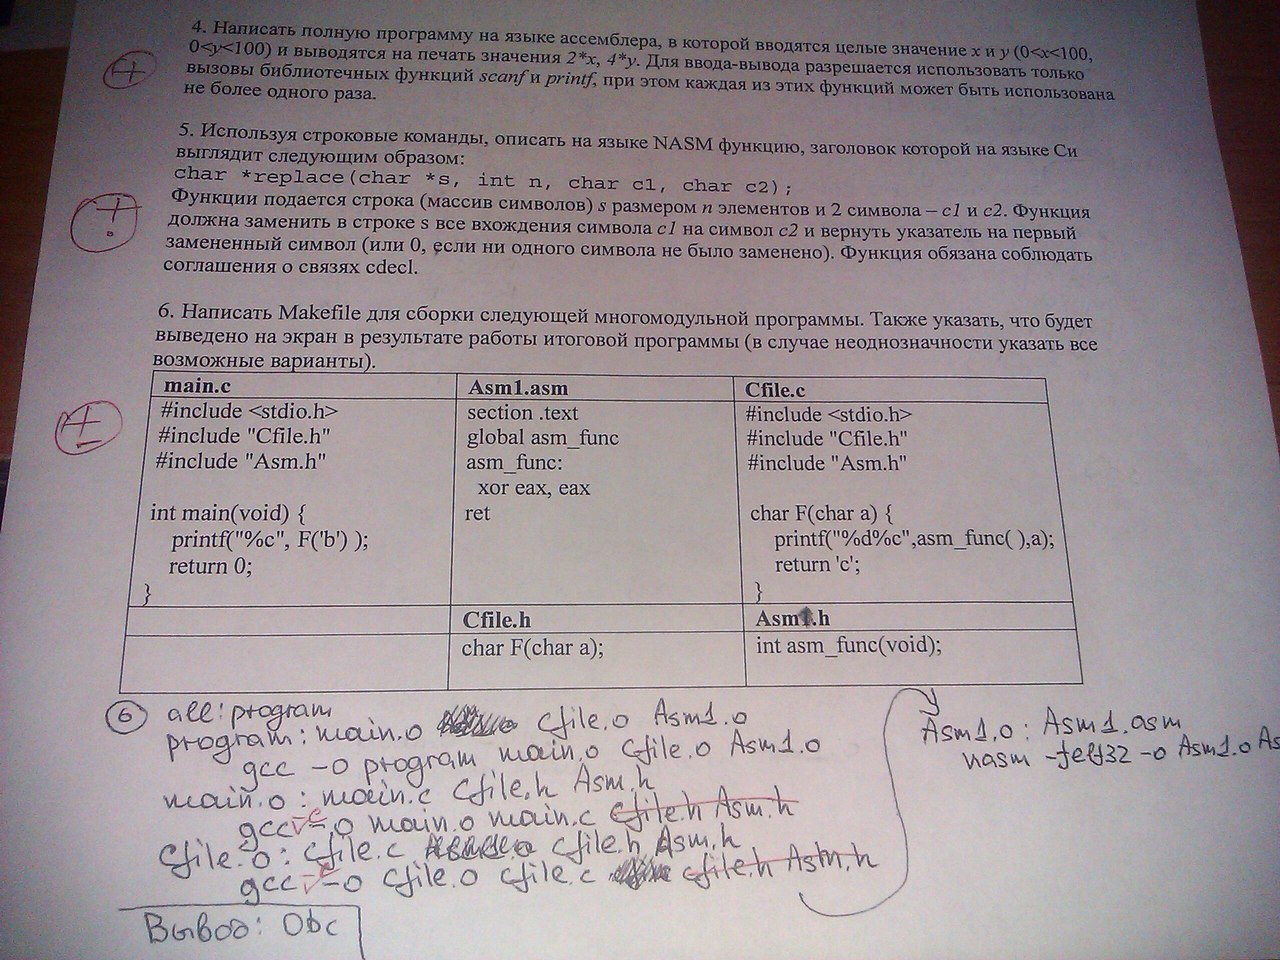 4. Написать полную программу на языке ассемблера, в которой вводятся целые значение x и y (0<x<100,
0<y<100) и выводятся на печать значения 2*x, 4*y. Для ввода-вывода разрешается использовать только
вызовы библиотечных функций scanf и printf, при этом каждая из этих функций может быть использована
не более одного раза.
5. Используя строковые команды, описать на языке NASM функцию, заголовок которой на языке Си
выглядит следующим образом:
char *replace(char *s, int n, char c1, char c2);
Функции подается строка (массив символов) s размером n элементов и 2 символа – c1 и c2. Функция
должна заменить в строке s все вхождения символа c1 на символ c2 и вернуть указатель на первый
замененный символ (или 0, если ни одного символа не было заменено). Функция обязана соблюдать
соглашения о связях cdecl.
6. Написать Makefile для сборки следующей многомодульной программы. Также указать, что будет
выведено на экран в результате работы итоговой программы (в случае неоднозначности указать все
возможные варианты).
main.c
#include <stdio.h>
#include "Cfile.h"
#include "Asm.h"
int main(void) {
printf("%c", F('b') );
return 0;
}
Asm1.asm
section .text
global asm_func
asm_func:
xor eax, eax
ret
Cfile.c
#include <stdio.h>
#include "Cfile.h"
#include "Asm.h"
char F(char a) {
printf("%d%c",asm_func( ),a);
return 'c';
}
Cfile.h
char F(char a);
Asm.h
int asm_func(void);
6 all: program
program: main.o Cfile.o Asm1.o
gcc -o program main.o Cfile.o Asm1.o
main.o : main.c Cfile.h Asm.h
gcc -c -o main.o main.c Cfile.h Asm.h
Cfile.o : Cfile.c Cfile.h Asm.h
gcc -c -o Cfile.o Cfile.c Cfile.h Asm.h
Asm1.o : Asm1.asm
nasm -felf32 -o Asm1.o As
Вывод: 0bc